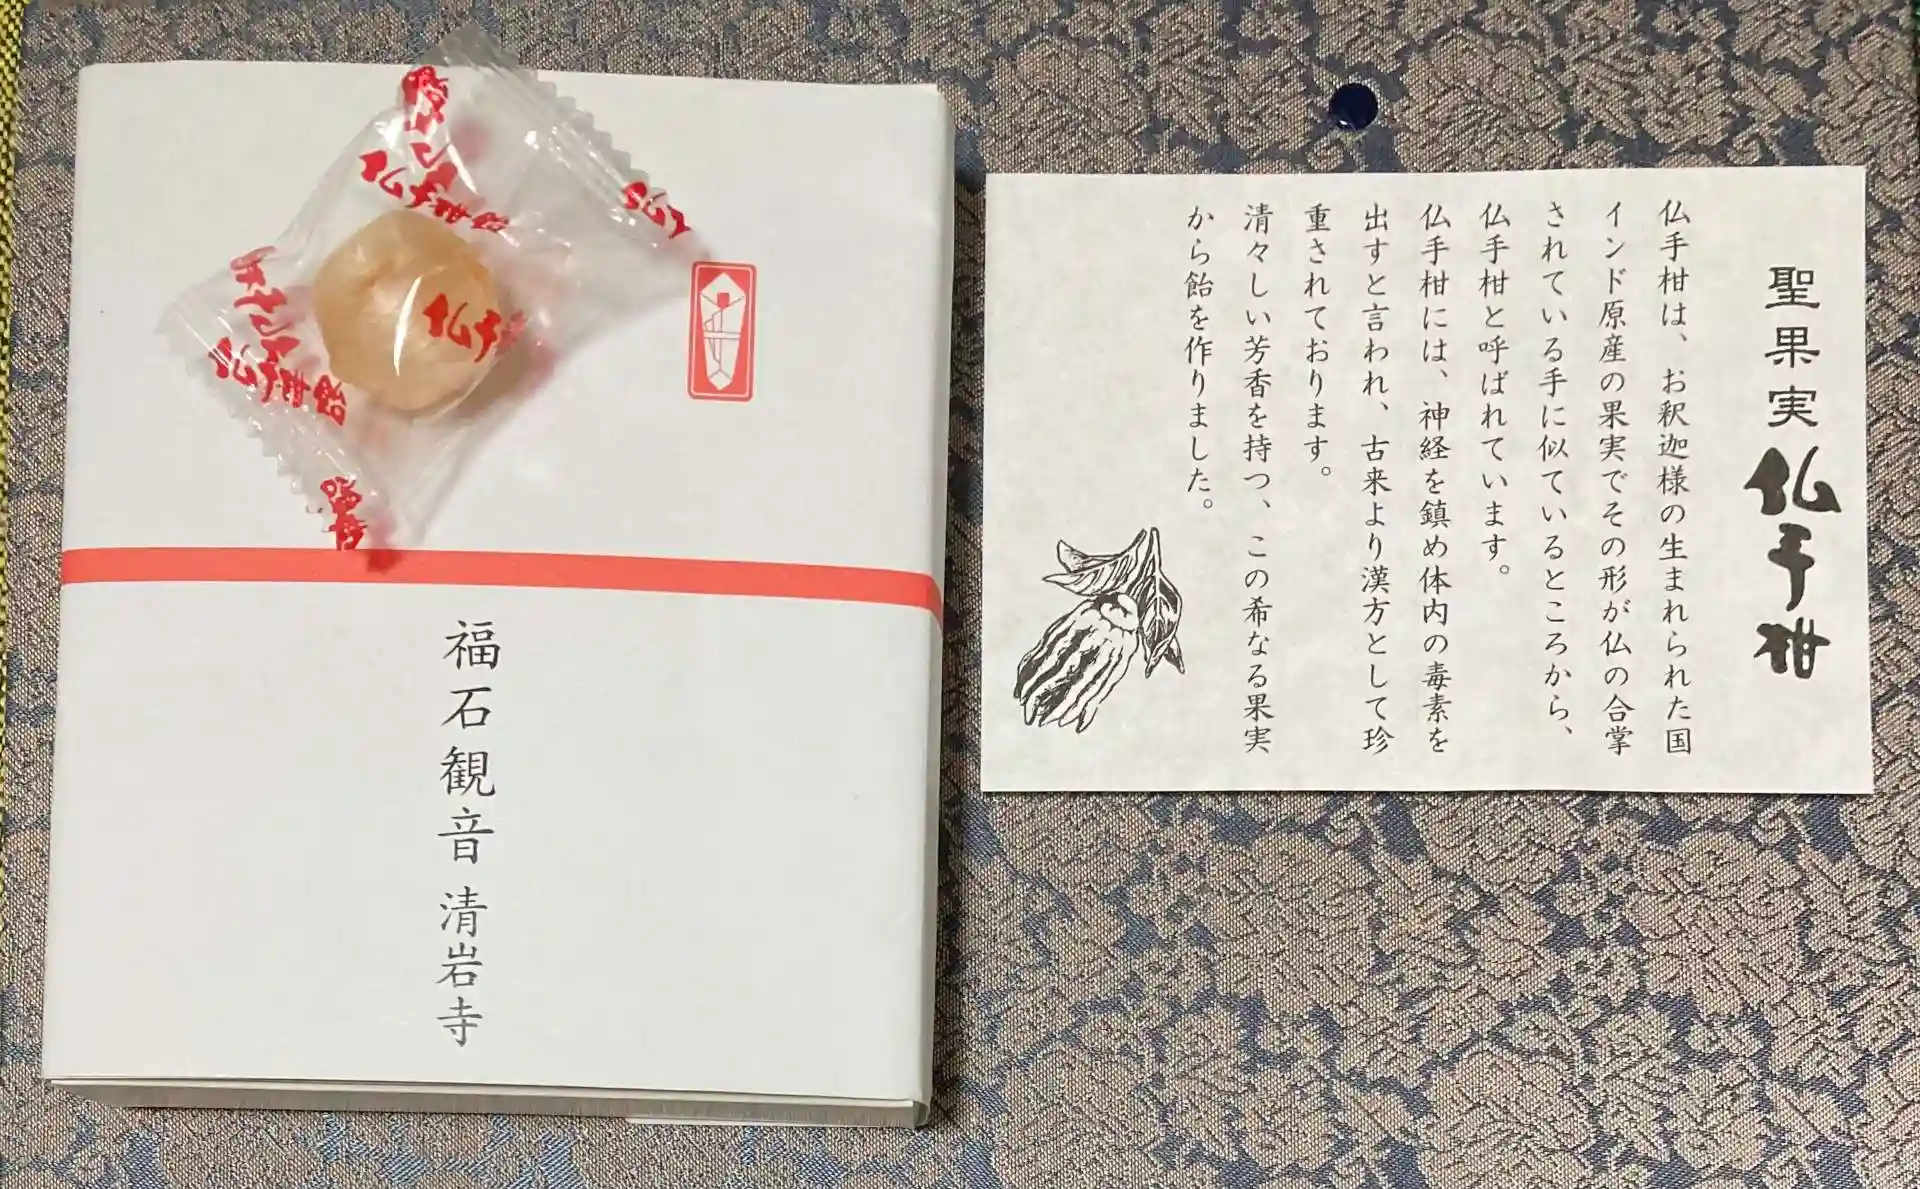 仏手柑飴
仏手柑飴
仏手
福石観音 清岩寺
聖果実 仏手柑
仏手柑は、お釈迦様の生まれられた国
インド原産の果実でその形が仏の合掌
されている手に似ているところから、
仏手柑と呼ばれています。
仏手柑には、神経を鎮め体内の毒素を
出すと言われ、古来より漢方として珍
重されております。
清々しい芳香を持つ、この希なる果実
から飴を作りました。